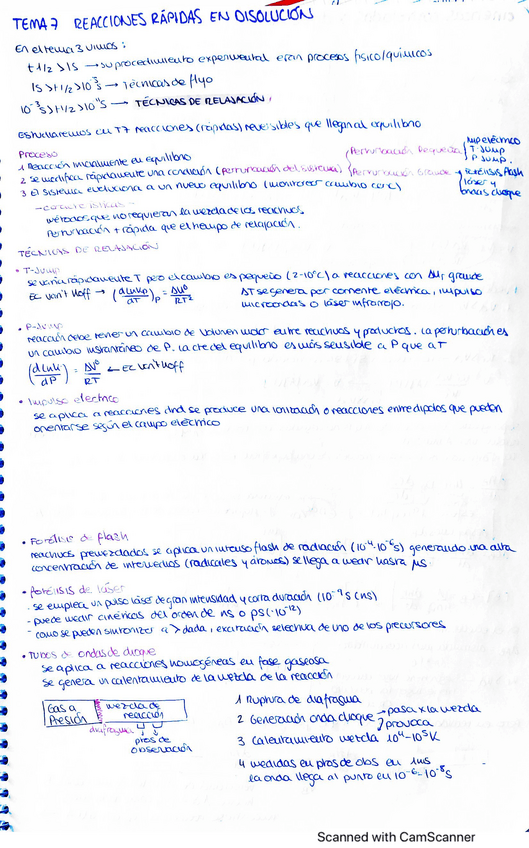 TEMA 7 REACCIONES RÁPIDAS EN DISOLUCIÓN
En el tema 3 vimos:
t 1/2 > 1s → su procedimiento experimental eran procesos físico/químicos
1s > t 1/2 > 10⁻³s → Técnicas de flujo
10⁻³s > t 1/2 > 10 s → TÉCNICAS DE RELAJACIÓN.
Estudiaremos en T7 reacciones (rápidas) reversibles que llegan al equilibrio
Proceso
1 Reacción inicialmente en equilibrio
2 se modifica rápidamente una condición (Perturbación del sistema) {Perturbación Pequeña {Imp eléctrico T-Jump P Jump.
Perturbación grande {Fotólisis flash láser y ondas choque
3 El sistema evoluciona a un nuevo equilibrio (monitorear cambio conc)
- características -
métodos que no requieran la mezcla de los reactivos.
Perturbación + rápida que el tiempo de relajación.
TÉCNICAS DE RELAJACIÓN
• T-Jump
se varía rápidamente T pero el cambio es pequeño (2-10°C) a reacciones con ΔHr grande
Ec Van't Hoff → (dLnKc/dT)p = ΔU⁰/RT² ΔT se genera por corriente eléctrica, impulso
microondas o láser infrarrojo.
• P-Jump
reacción debe tener un cambio de volumen molar entre reactivos y productos. La perturbación es
un cambio instantáneo de P. La cte del equilibrio es más sensible a P que a T
(dLnK/dP) = ΔV⁰/RT ← Ec Van't Hoff
• Impulso eléctrico
se aplica a reacciones dnd se produce una ionización o reacciones entre dipolos que pueden
orientarse según el campo eléctrico
• Fotólisis de flash
reactivos premezclados se aplica un intenso flash de radiación (10⁻⁴-10⁻⁶s) generando una alta
concentración de intermedios (radicales y átomos) se llega a medir hasta μs.
• Fotólisis de láser
- se emplea un pulso láser de gran intensidad y corta duración (10⁻⁹s (ns)
- puede medir cinéticas del orden de ns o ps (·10⁻¹²)
- como se pueden sintonizar a λ dada, excitación selectiva de uno de los precursores
• Tubos de ondas de choque
se aplica a reacciones homogéneas en fase gaseosa
se genera un calentamiento de la mezcla de la reacción
Gas a Presión
mezcla de reacción
diafragma
ptos de observación
1 Ruptura de diafragma
2 Generación onda choque → pasa x la mezcla
provoca
3 Calentamiento mezcla 10⁴-10⁵K
4 medidas en ptos de obs en 1ms
la onda llega al punto en 10⁻⁶-10⁻⁸s
Scanned with CamScanner